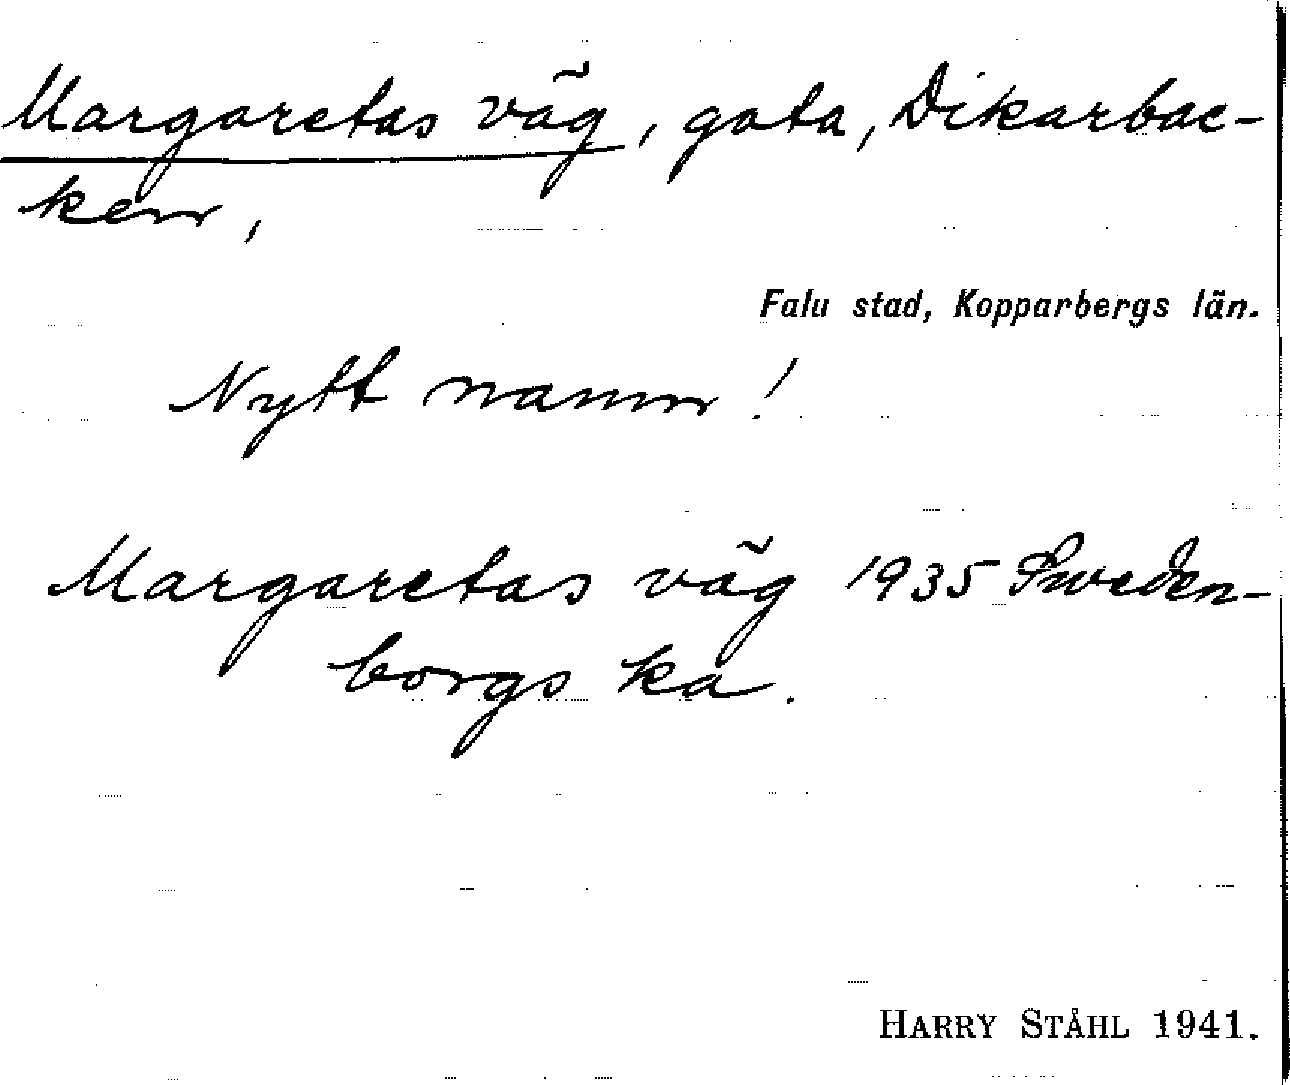 Margaretas väg, gata, Dikarbac-
ken,
Falu stad, Kopparbergs län.
Nytt namn!
Margaretas väg 1935 Sweden-
borgs ka.
HARRY STÅHL 1941.